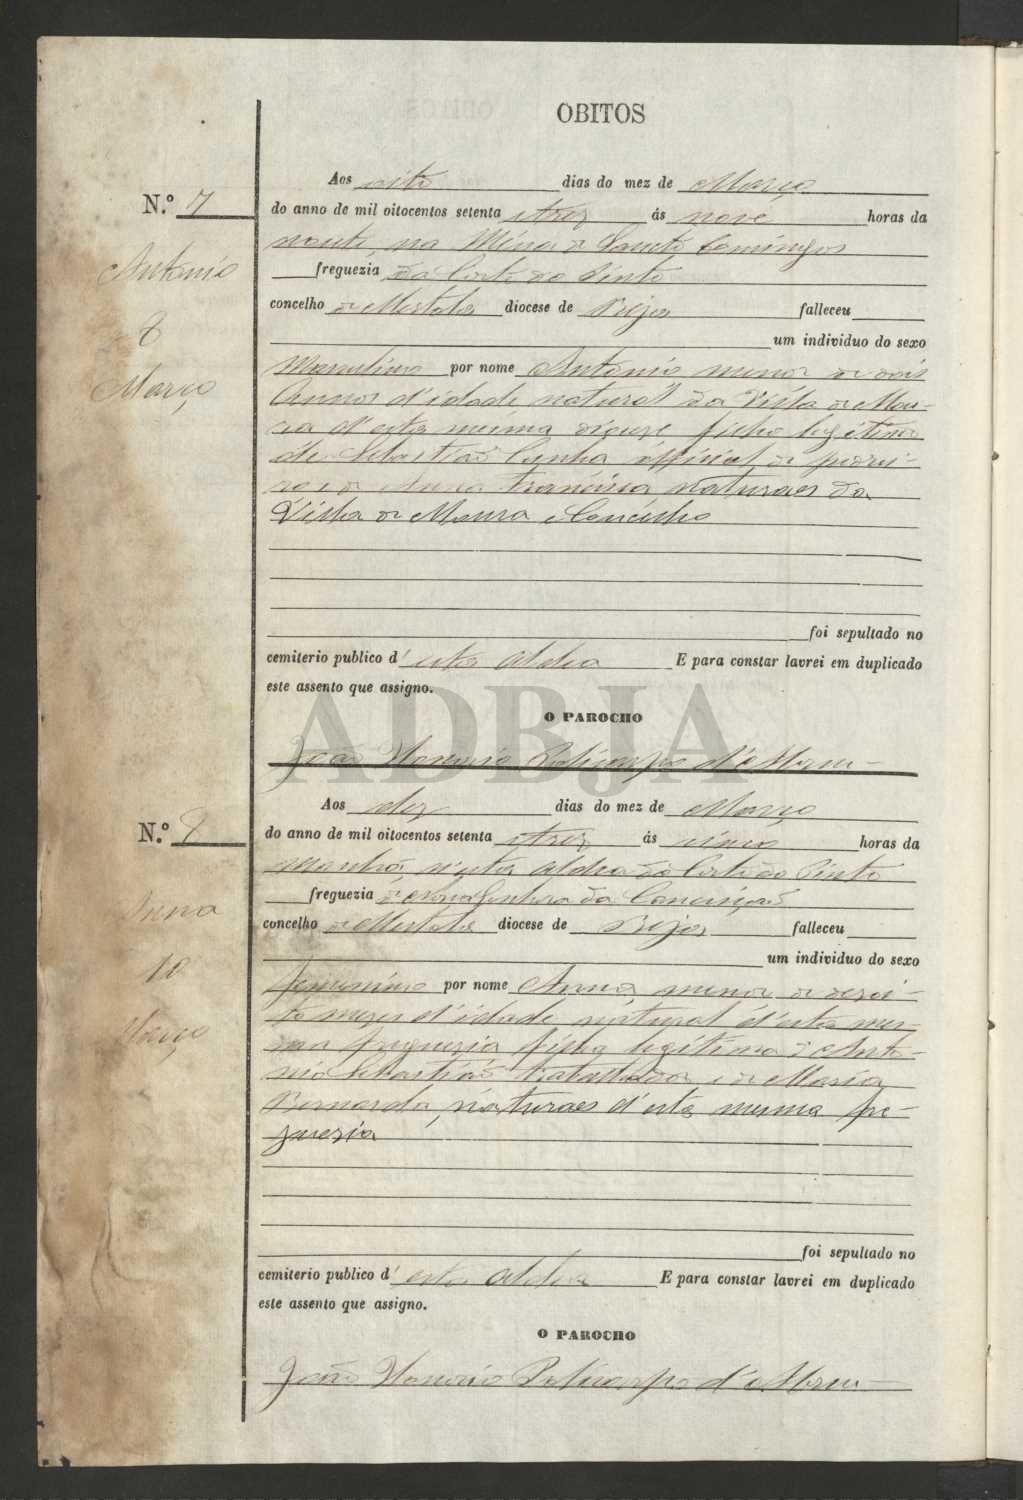 OBITOS
N.º 7
Antonio
8
Março
Aos oito dias do mez de Março
do anno de mil oitocentos setenta e trez ás nove horas da
noute, na Mina de Sancto Domingos
freguezia da Corte do Pinto
concelho de Mertola diocese de Beja falleceu
um individuo do sexo
Masculino por nome Antonio menor de dois
Annos d'idade, natural da Villa de Mou-
ra d'esta mesma diocese filho legitimo
de Sebastião Cunha official de pedrei-
ro e de Anna Francisca, naturaes da
Villa de Moura e Concelho
foi sepultado no
cemiterio publico d' esta Aldea E para constar lavrei em duplicado
este assento que assigno.
O PAROCHO
João Honorio Policarpo d'Abreu
ADBJA
N.º 8
Anna
10
Março
Aos dez dias do mez de Março
do anno de mil oitocentos setenta e trez ás cinco horas da
manhã, n'esta Aldea da Corte do Pinto
freguezia de Nossa Senhora da Conceição
concelho de Mertola diocese de Beja falleceu
um individuo do sexo
femenino por nome Anna, menor de dezoi-
to mezes d'idade, natural d'esta mes-
ma freguezia filha legitima d'Anto-
nio Sebastião Trabalhador, e de Maria
Bernarda, naturaes d'esta mesma fre-
guezia
foi sepultado no
cemiterio publico d' esta Aldea E para constar lavrei em duplicado
este assento que assigno.
O PAROCHO
João Honorio Policarpo d'Abreu